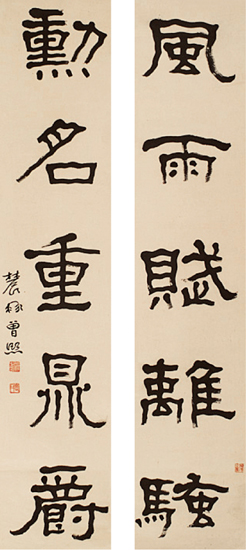 風雨賦離騷
勳名重鼎爵
農髯曾熙